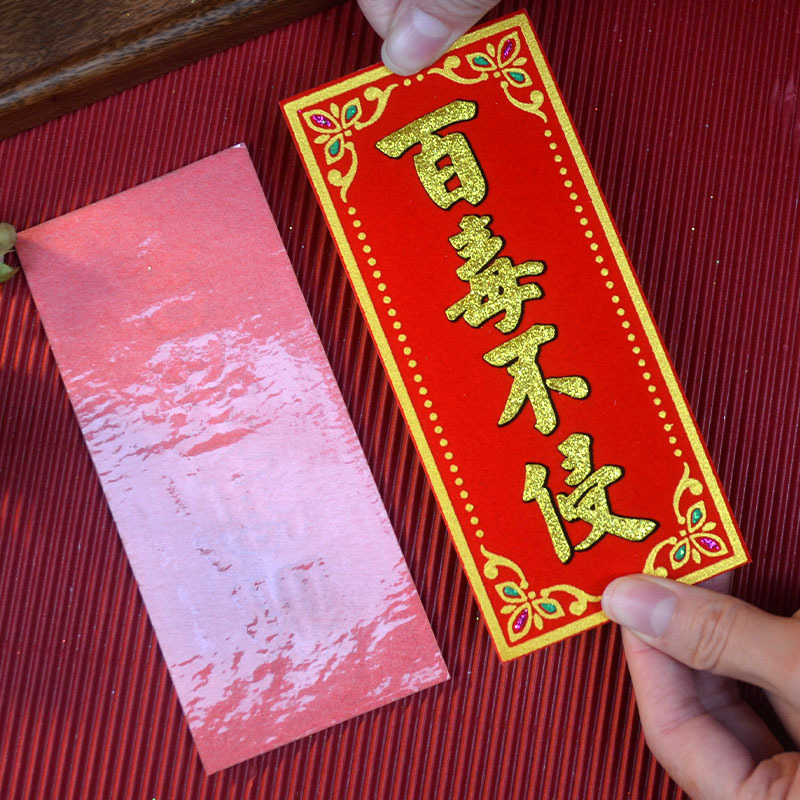 百毒不侵